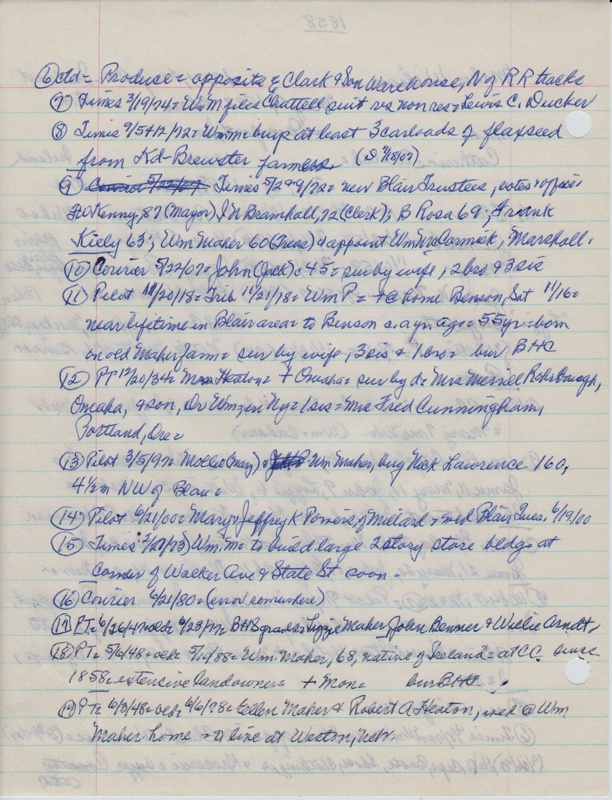 1858
⑥ dtd = Produce = opposite Clark & Son Warehouse, N of RR tracks
⑦ Times 3/19/74 = Wm M files Chattell suit vs non res = Lewis C. Ducker
⑧ Times 9/5+12/72 = Wm m = buys at least 3 carloads of flaxseed
from Kd-Brewster farmers
⑨ Times 5/2+9/78 = new Blair Trustees, votes + offices
Kenny, 87 (Mayor) J N Bramhall, 72 (Clerk); B Rosa 69; Frank
Kiely 65; Wm Maher 60 (Treas) + appoint Wm McCormick, Marshall.
⑩ Courier 5/22/07 = John (Jack) = 45 = sur by wife, 2 bro + 3 sis
⑪ Pilot 11/20/18 = Trib 11/21/18 = Wm P = + @ home Benson, Sat 11/16 =
near lifetime in Blair area = to Benson c. a yr ago = 55 yr = born
on old Maher farm = sur by wife, 3 sis + 1 bro = bur BHC
⑫ PT 12/20/34 = Mrs Heaton = + Omaha = sur by d = Mrs Merrill
Omaha, + son, Dr Wm in Ny = 1 sis = Mrs Fred Cunningham,
Portland, Ore =
⑬ Pilot 3/5/92 = Mollie (Mary) = Wm Maher, buy Nick Lawrence 160,
4½ m NW of Blair =
⑭ Pilot 6/21/00 = Mary = Jeffrey K Powers, of Millard = wed Blair Tues. 6/19/00
⑮ Times Wm. M = to build large 2 story store bldg = at
Corner of Walker Ave & State St soon.
⑯ Courier 9/21/80 = (error somewhere)
⑰ PT = 6/26/47 = BHS grads = Lizzie Maher, John Benner & Willie Arndt,
⑱ PT = 5/6/48 = 5/10/88 = Wm. Maher, 68, native of Ireland = at CC since
1858 = extensive landowner = + Mon = bur BHC
⑲ PT = 6/3/48 = 6/6/78 = Ellen Maher & Robert A Heaton, wed @ Wm
Maher home = to live at Weston, Nebr.